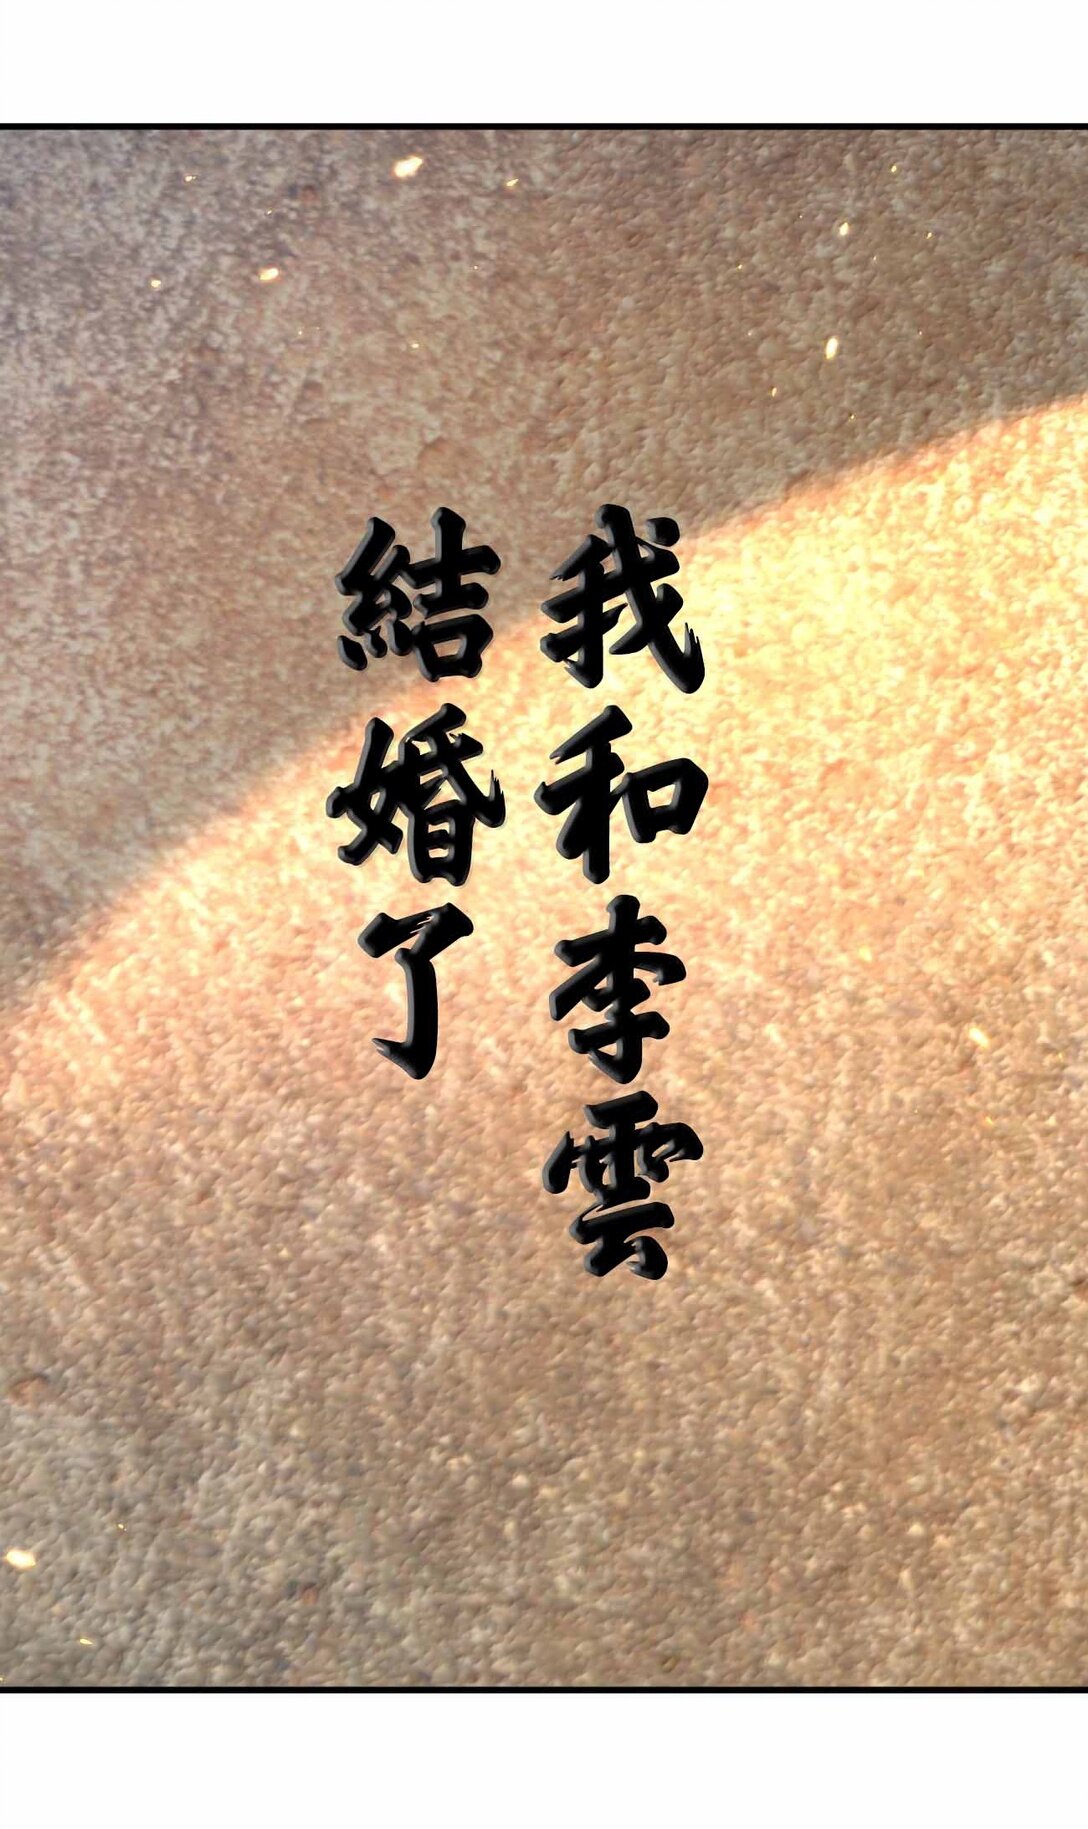 我和李雲
結婚了